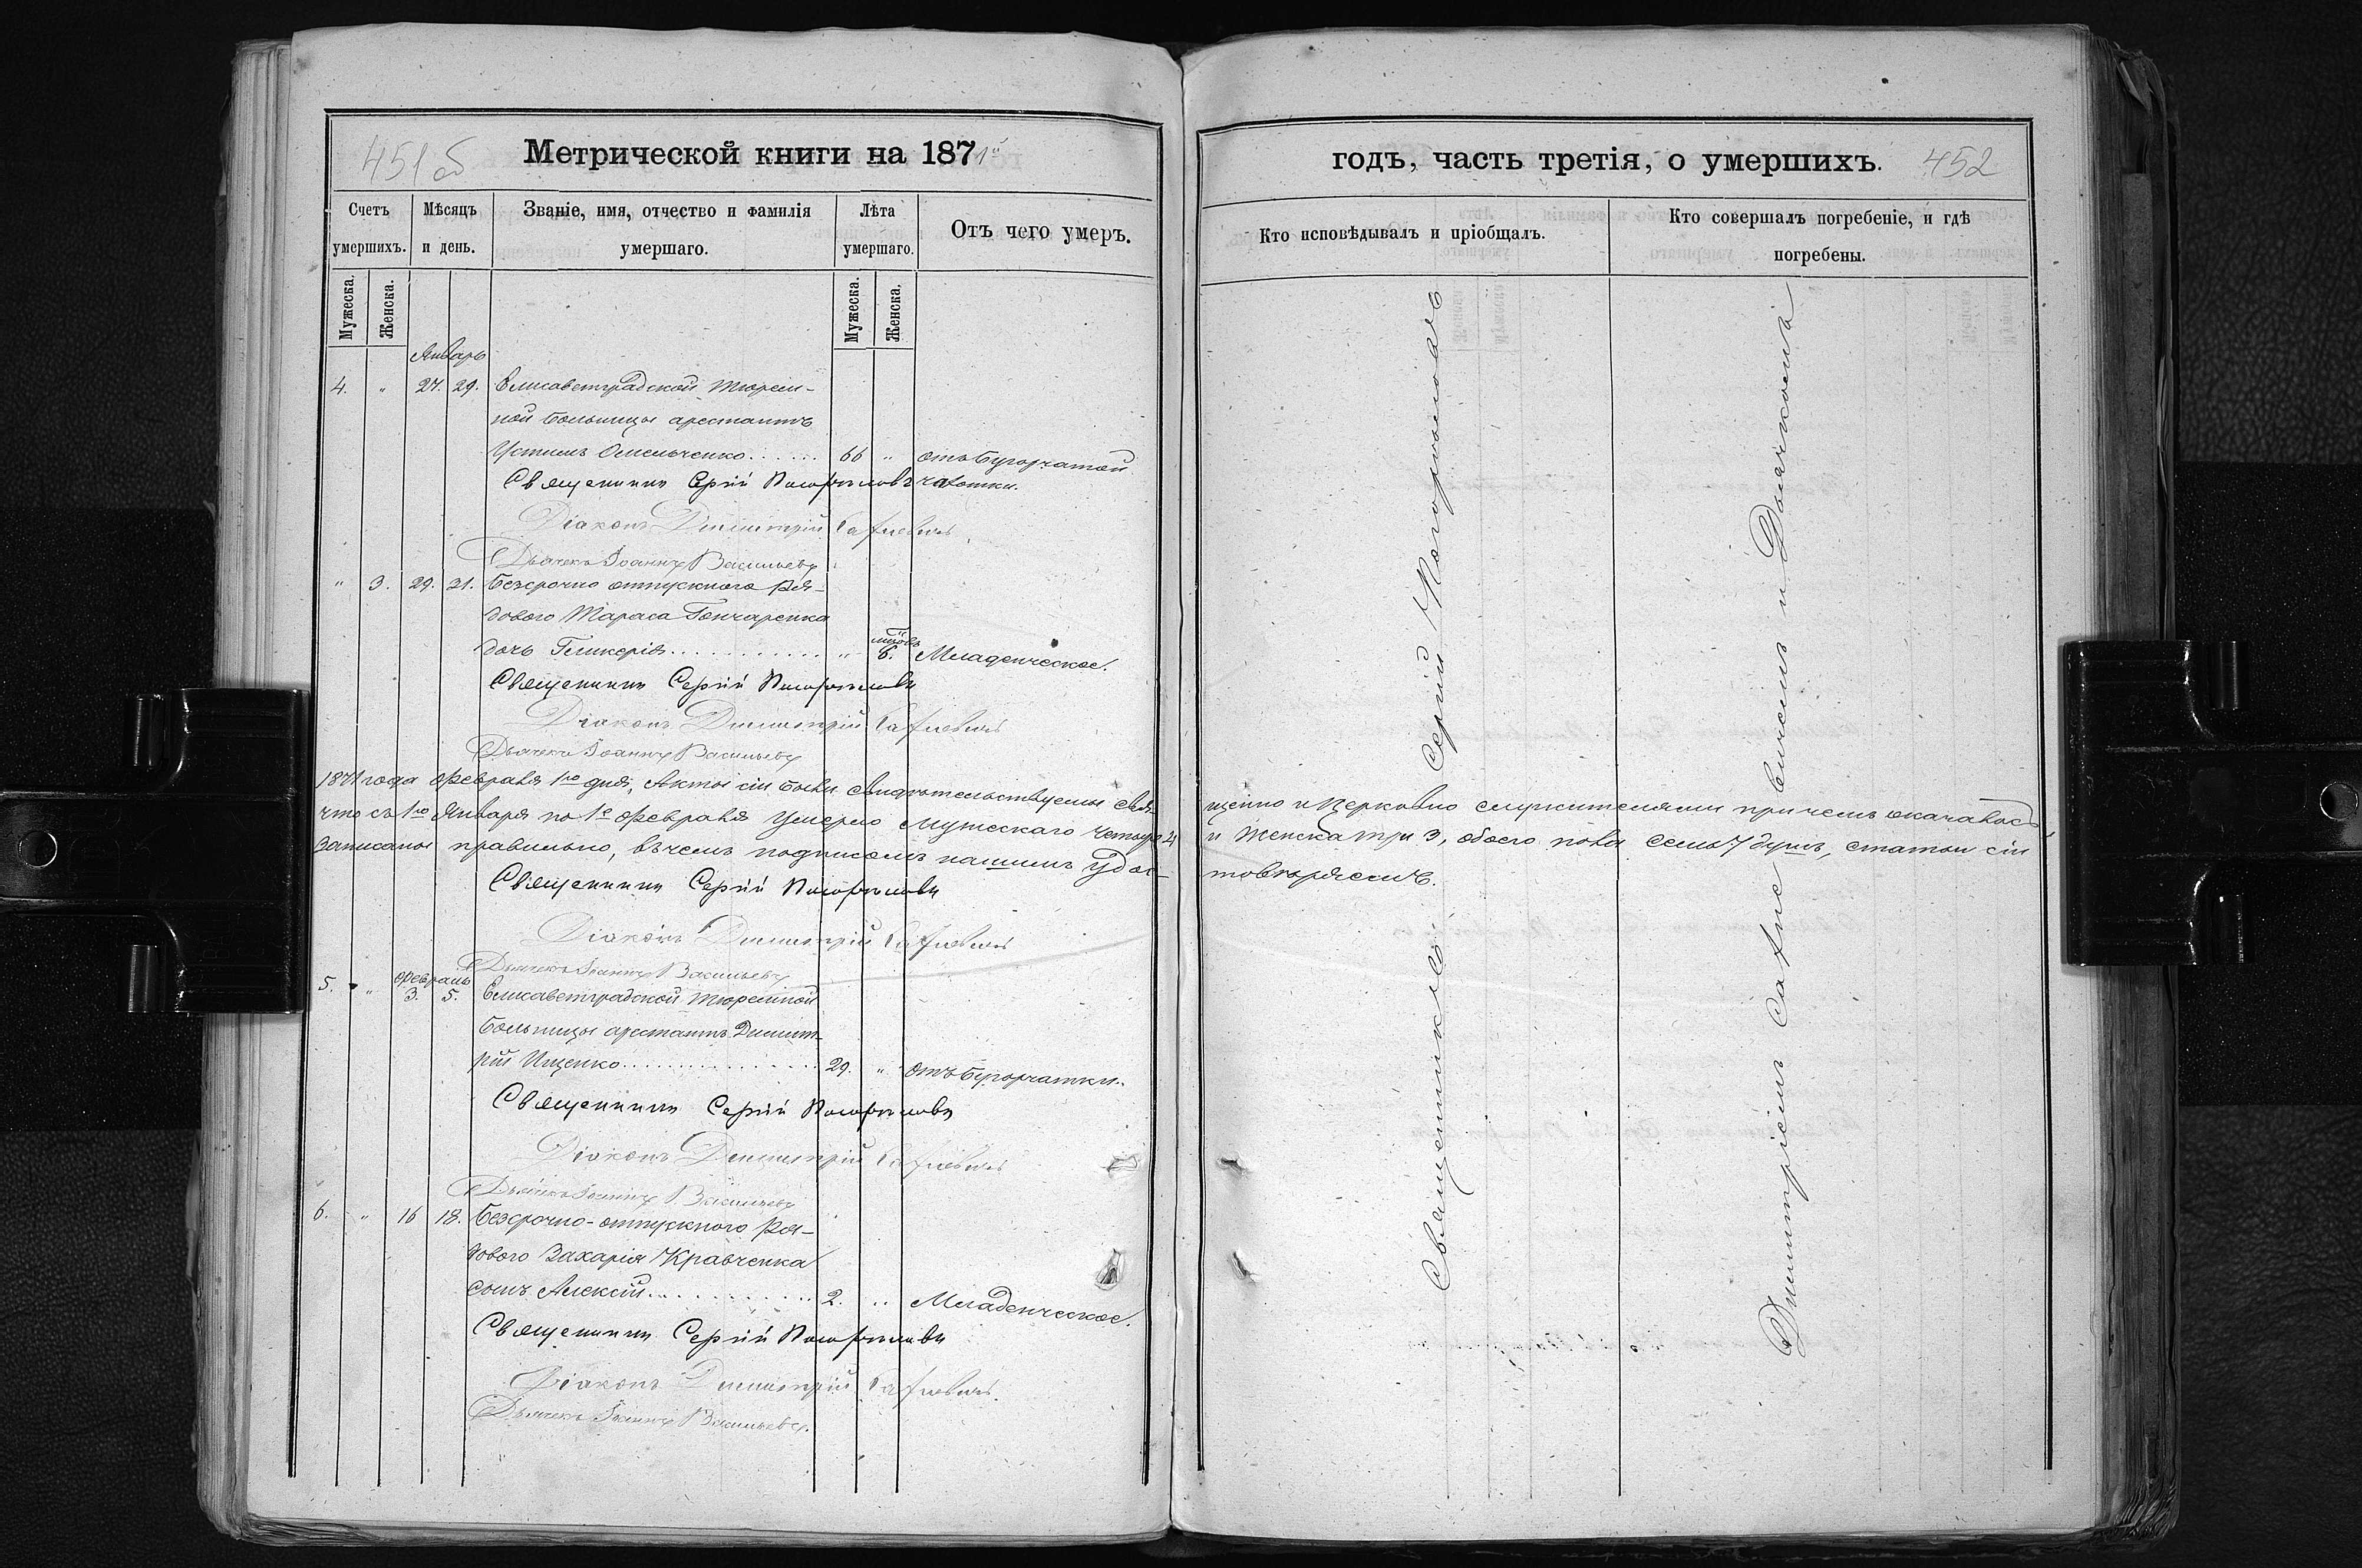 451 об
Метрической книги на 1871й
Счетъ умершихъ.
Мѣсяцъ и день.
Званіе, имя, отчество и фамилія умершаго.
Лѣта умершаго.
Отъ чего умеръ.
Мужеска.
Женска.
Мужеска.
Женска.
Январь
4. " 27. 29. Елисаветградской тюрем-
ной больницы арестантъ
Устимъ Омельченко...... 66 " отъ бугорчатой
Священникъ Сергій Погорѣловъ чахотки.
Діаконъ Димитрій
Дьячекъ Іоаннъ Васильевъ
" 3. 29. 31. Безсрочно отпускнаго Ря-
доваго Тараса Гончаренка
дочь Гликерія............ " 6. мцовъ Младенческое.
Священникъ Сергій Погорѣловъ
Діаконъ Димитрій
Дьячекъ Іоаннъ Васильевъ
1871 года Февраля 1го дня, Акты сіи были свидѣтельствуемы свя-
что съ 1го Января по 1е Февраля умерло мужескаго четыре 4
записаны правильно, въ чемъ подписомъ нашимъ удос-
Священникъ Сергій Погорѣловъ
Діаконъ Димитрій
Дьячекъ Іоаннъ Васильевъ
Февраль
5. " 3. 5. Елисаветградской тюремной
больницы арестантъ Димит-
рій Ищенко................ 29. " отъ бугорчатки.
Священникъ Сергій Погорѣловъ
Діаконъ Димитрій
Дьячекъ Іоаннъ Васильевъ
6. " 16 18. Безсрочно-отпускного Ря-
дового Захарія Кравченка
сынъ Алексій............ 2. " Младенческое.
Священникъ Сергій Погорѣловъ
Діаконъ Димитрій
Дьячекъ Іоаннъ Васильевъ.
годъ, часть третія, о умершихъ.
452
Кто исповѣдывалъ и пріобщалъ.
Кто совершалъ погребеніе, и гдѣ
погребены.
щенно и церковно служителями причемъ оказалось
и женска три 3, обоего пола семь 7 душъ, статьи сіи
товѣряемъ.
Священникъ Сергій Погорѣловъ
Димитріемъ и Дьячкомъ